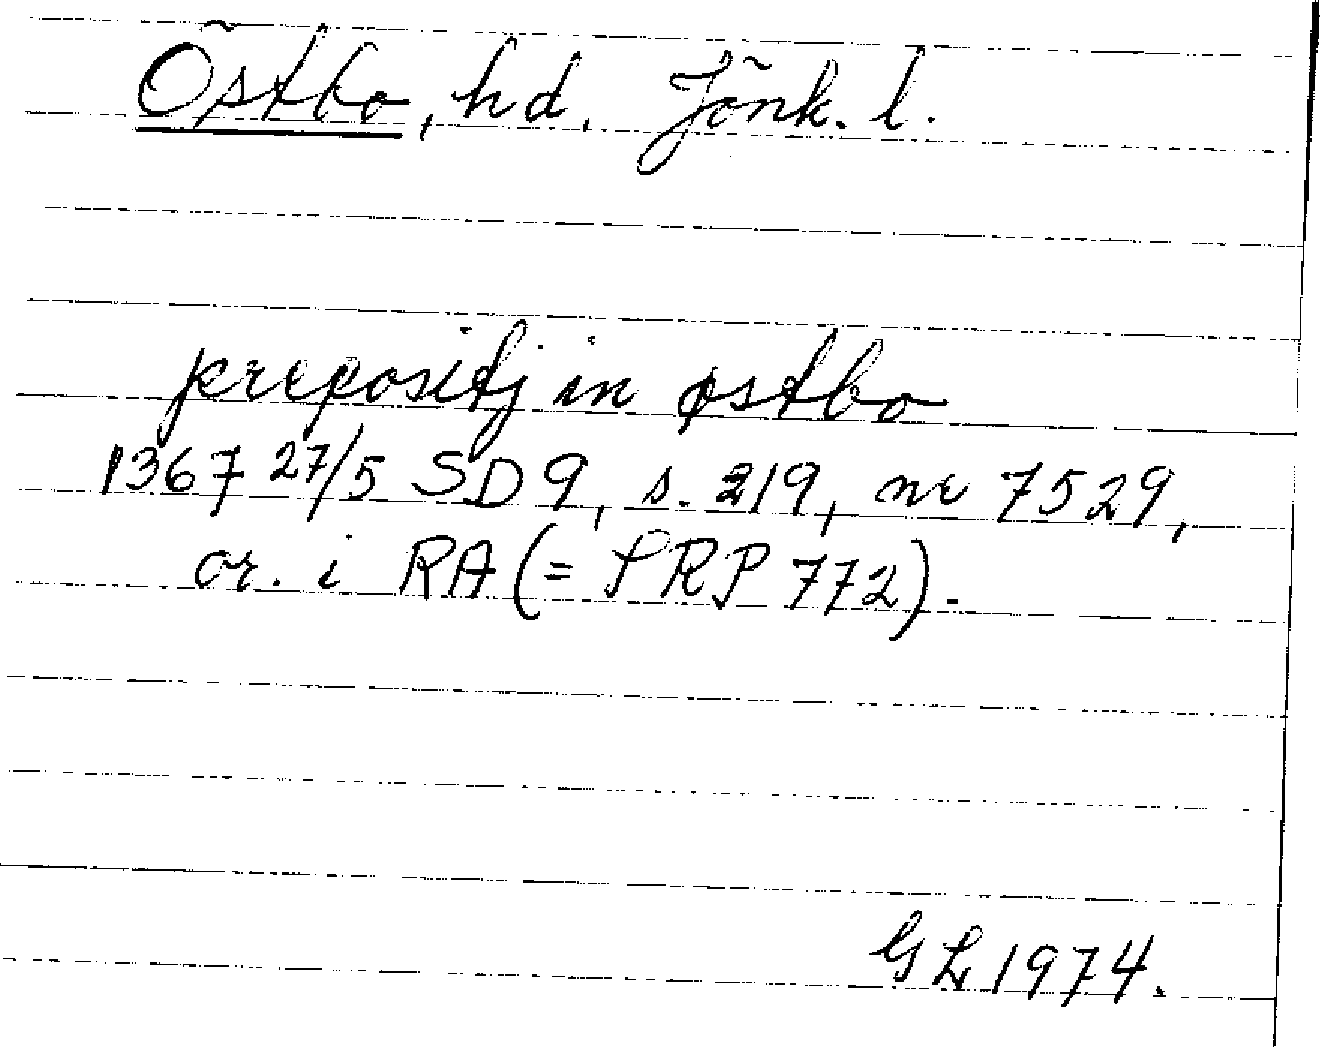 Östbo, hd. Jönk. l.
prepositj in østbo
1367 27/5 SD 9, s. 219, nr 7529,
or. i RA (= SRP 772).
GL 1974.